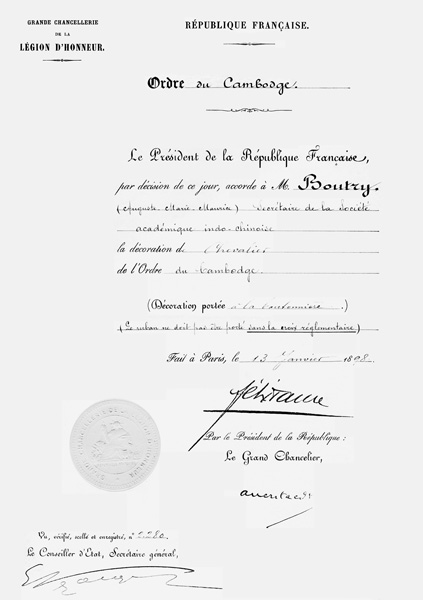 GRANDE CHANCELLERIE
DE LA
LÉGION D'HONNEUR.
RÉPUBLIQUE FRANÇAISE.
Ordre du Cambodge.
Le Président de la République Française,
par décision de ce jour, accorde à M. Boutry
(Auguste Marie Maurice) Secrétaire de la Société
académique indo-chinoise
la décoration de Chevalier
de l'Ordre du Cambodge.
(Décoration portée à la boutonnière.)
(Le ruban ne doit pas être porté sans la croix réglementaire)
Fait à Paris, le 13 Janvier 1898.
Par le Président de la République:
Le Grand Chancelier,
Vu, vérifié, scellé et enregistré, n° 2280.
Le Conseiller d'Etat, Secrétaire général,